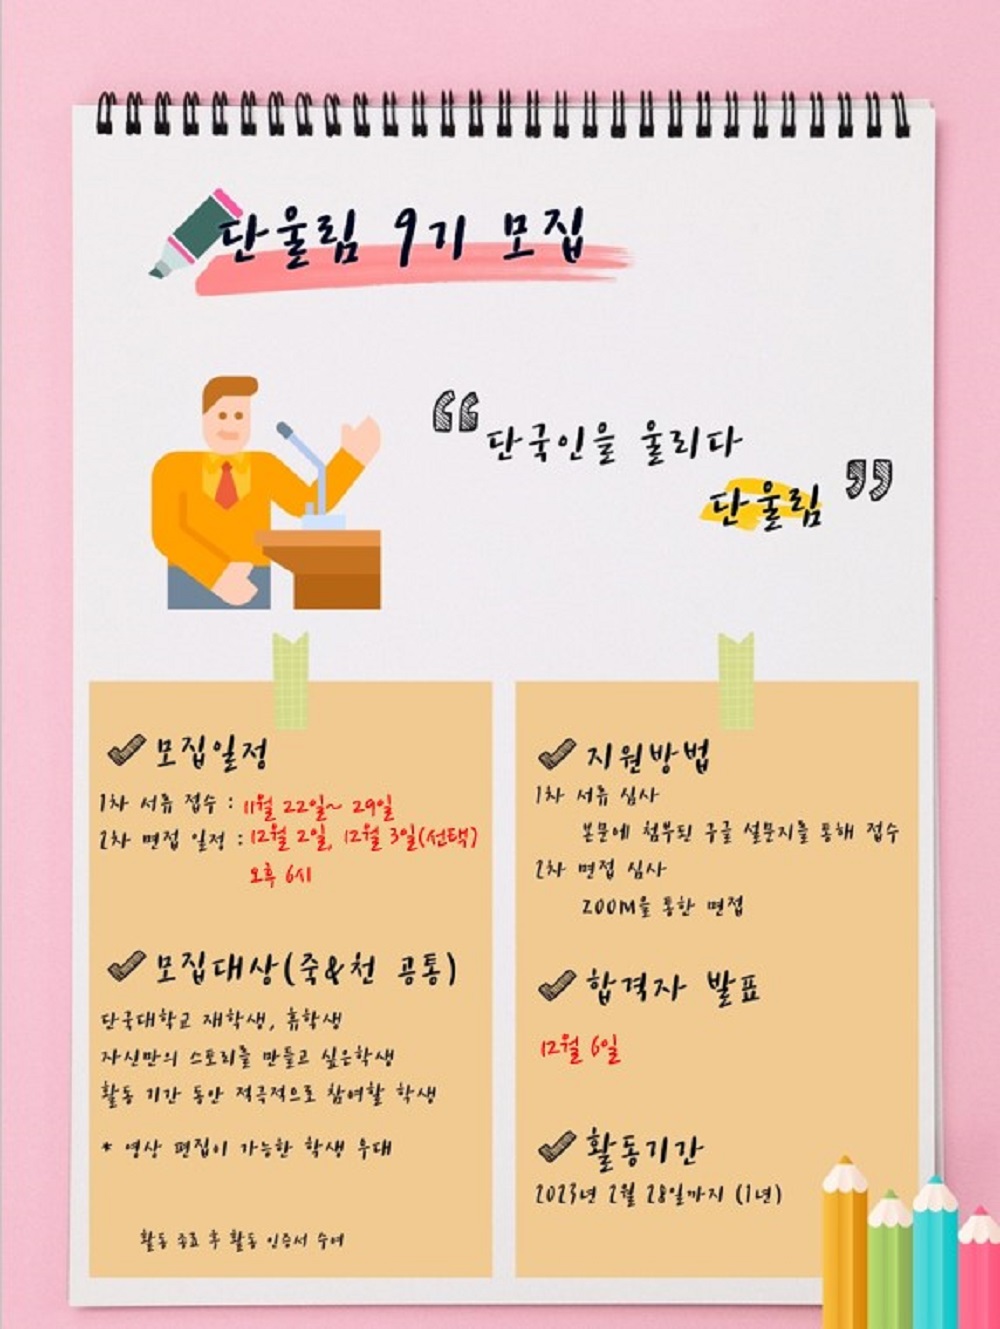 단울림 9기 모집
단국인을 울리다
단울림
모집일정
1차 서류 접수 : 11월 22일~ 29일
2차 면접 일정 : 12월 2일, 12월 3일(선택)
오후 6시
모집대상(죽&천 공통)
단국대학교 재학생, 휴학생
자신만의 스토리를 만들고 싶은학생
활동 기간 동안 적극적으로 참여할 학생
* 영상 편집이 가능한 학생 우대
활동 종료 후 활동 인증서 수여
지원방법
1차 서류 심사
본문에 첨부된 구글 설문지를 통해 접수
2차 면접 심사
ZOOM을 통한 면접
합격자 발표
12월 6일
활동기간
2023년 2월 28일까지 (1년)